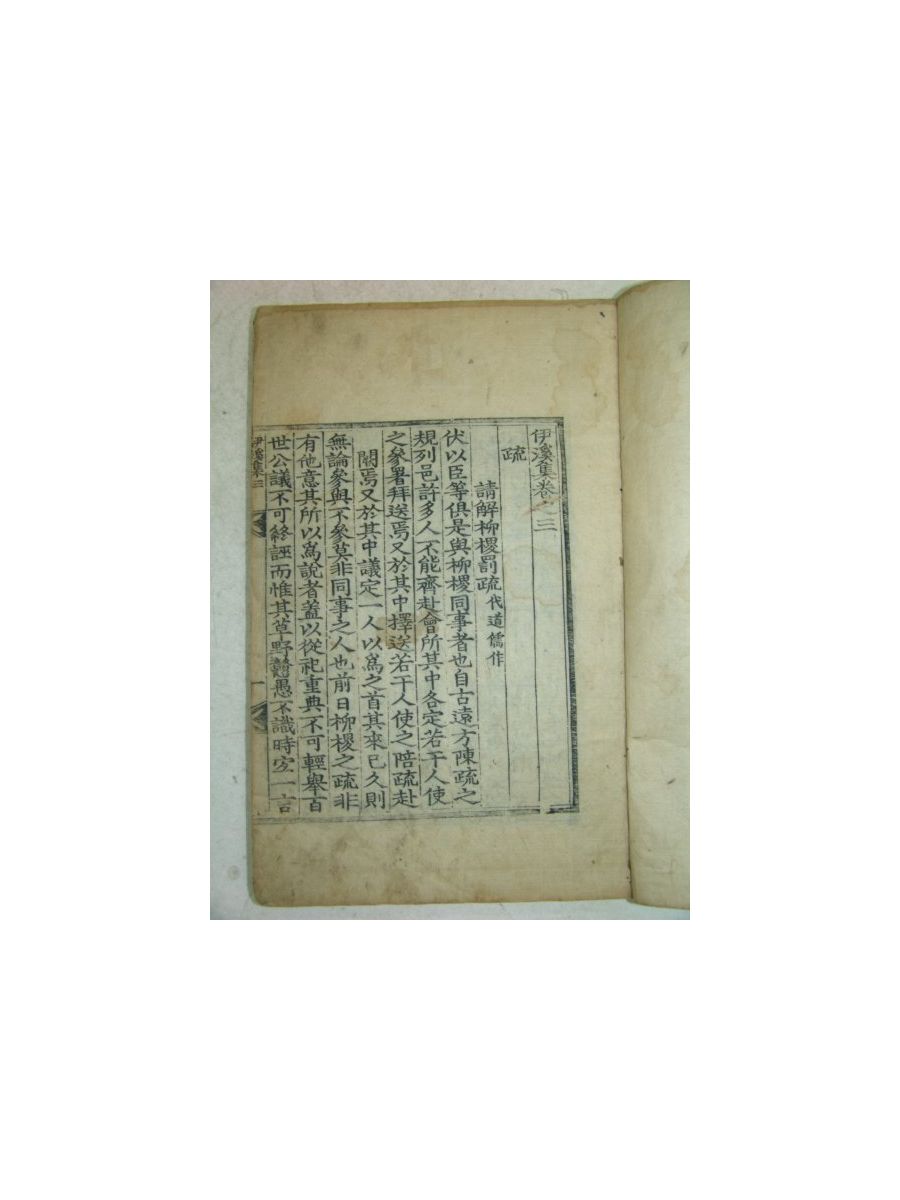 伊溪集卷之三
疏
請解柳櫻罰疏代道儒作
伏以臣等俱是與柳櫻同事者也自古遠方陳疏之
規列邑許多人不能齊赴會所其中各定若干人使
之參署拜送焉又於其中擇送若干人使之陪疏赴
闕焉又於其中議定一人以爲之首其來已久則
無論參與不參莫非同事之人也前日柳櫻之疏非
有他意其所以爲說者盖以從祀重典不可輕舉百
世公議不可終誣而惟其草野戇愚不識時宜一言
伊溪集三 一